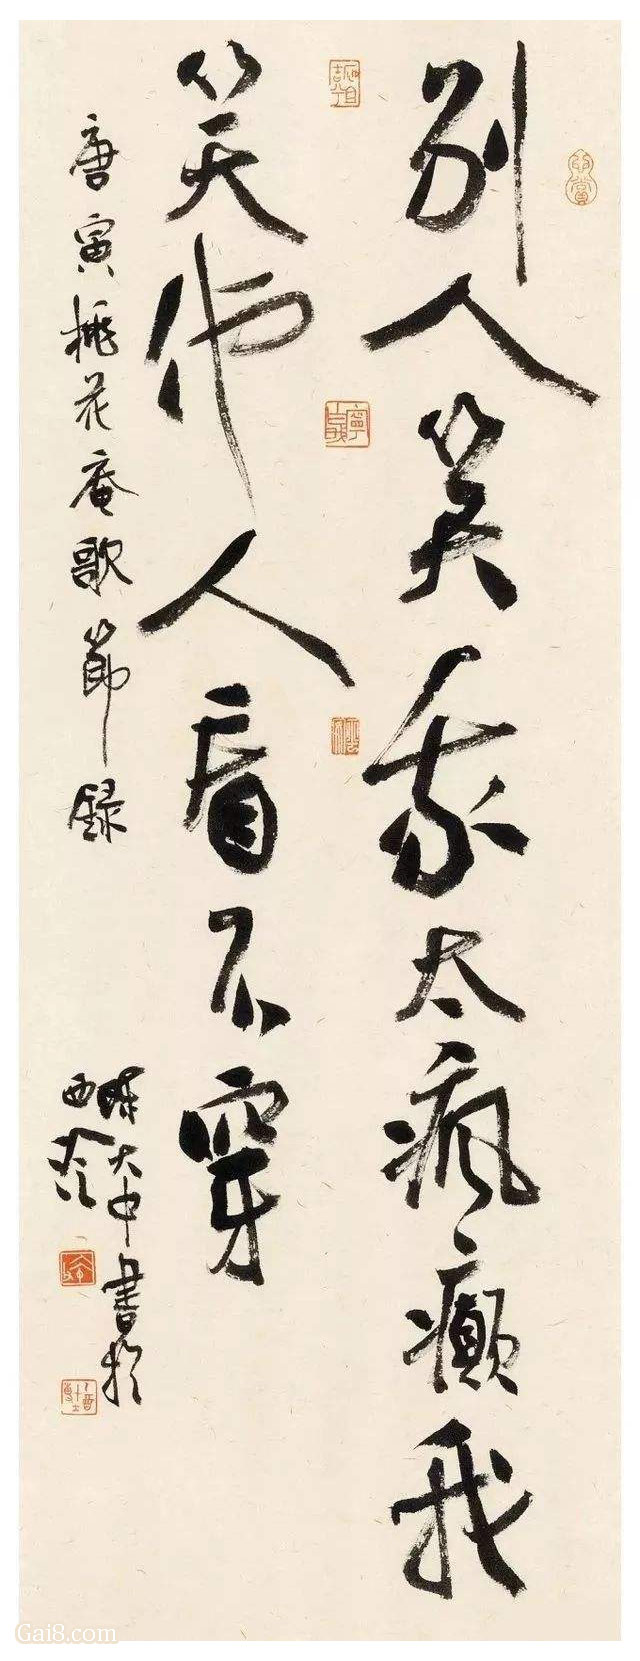 别人笑我太疯癲我
笑他人看不穿
唐寅桃花庵歌節録
陳大中書於
西泠
Gai8.com